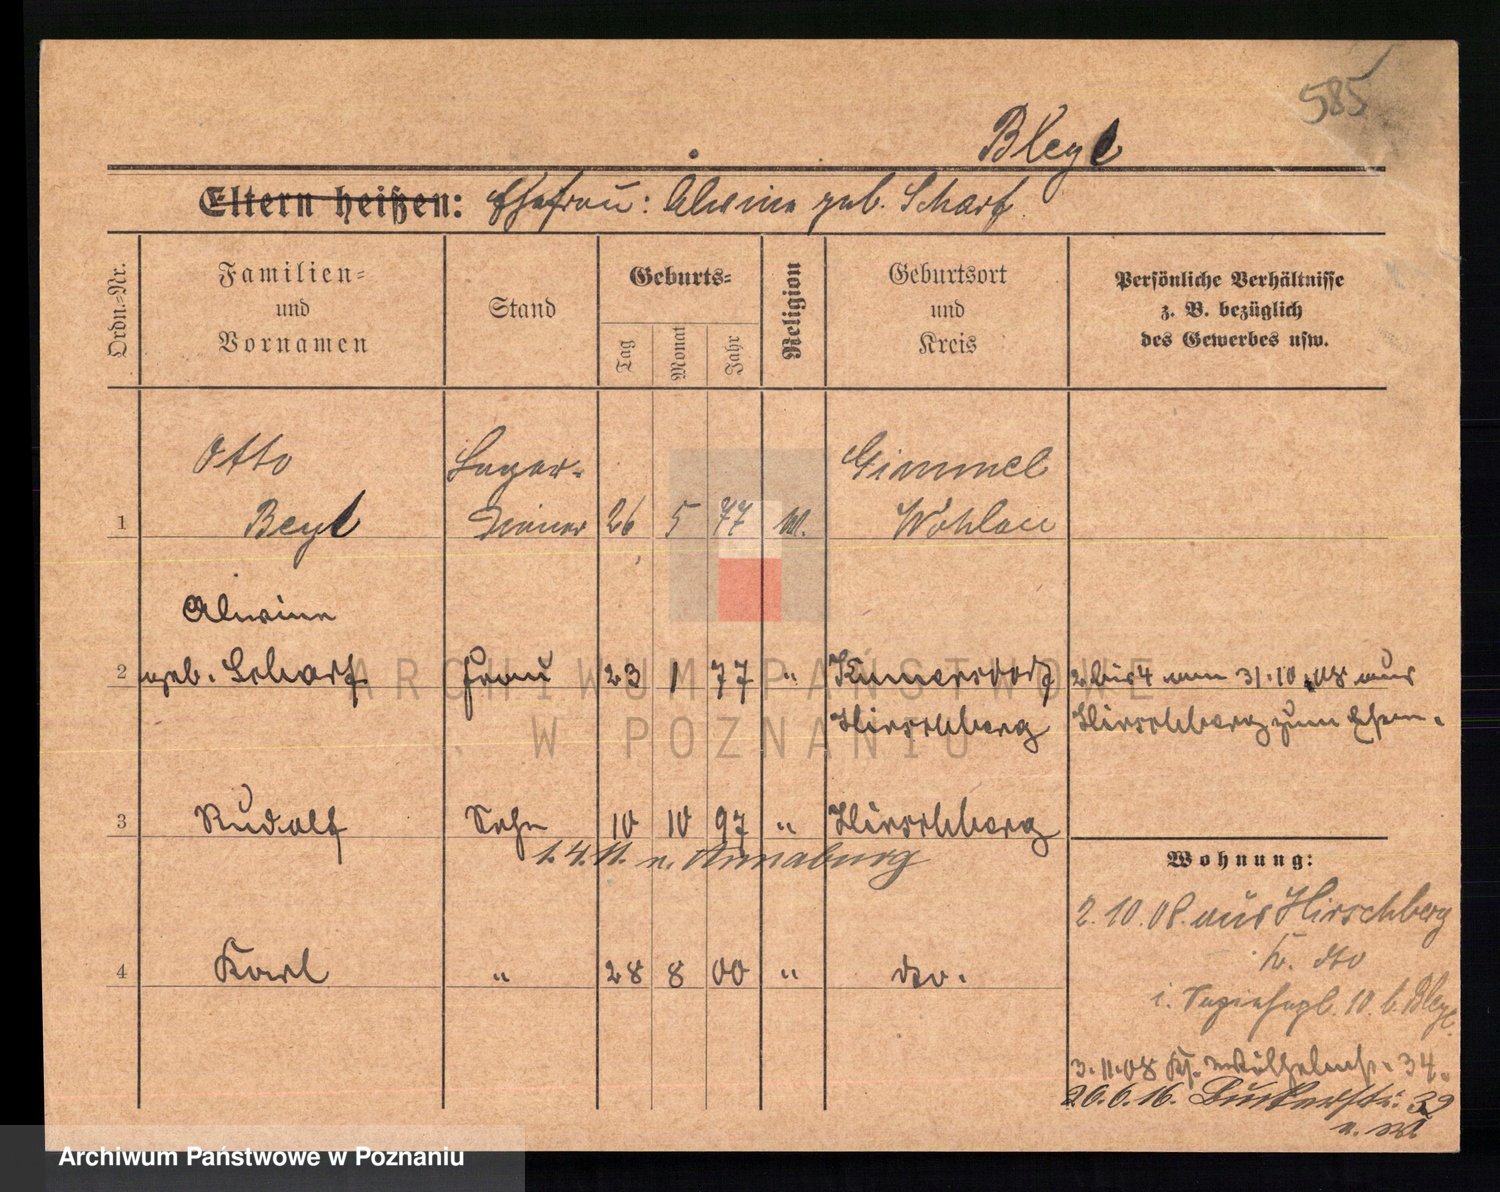 585
Bleyl
Eltern heißen: Ehefrau: Alwine geb. Scharf
Ordn.-Nr.
Familien-
und
Vornamen
Stand
Geburts-
Tag
Monat
Jahr
Religion
Geburtsort
und
Kreis
Persönliche Verhältnisse
z. B. bezüglich
des Gewerbes usw.
Otto Lager- Gimmel
1 Beyl Diener 26 5 77 Wohlau
Alwine
2 geb. Scharf Frau 23 1 77 " 2 bis 4 am 31.10.08 aus
Hirschberg Hirschberg zum
3 Rudolf Sohn 10 10 97 " Hirschberg
1.4.11. n. Annaburg
Wohnung:
2.10.08. aus Hirschberg
4 Karl " 28 8 00 " do.
K. dto
i. 10. b. Bleyl.
3.11.08 34.
20.6.16. 39
ARCHIWUM PAŃSTWOWE
W POZNANIU
Archiwum Państwowe w Poznaniu